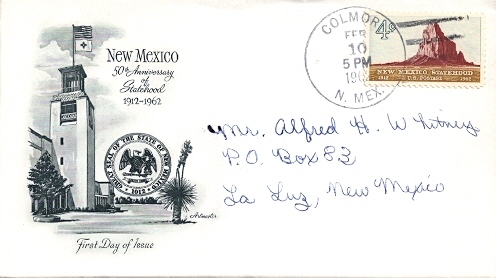 New Mexico
50th Anniversary
of
Statehood
1912-1962
GREAT SEAL OF THE STATE OF NEW MEXICO
1912
Artmaster
First Day of Issue
COLMOR
FEB
10
5 PM
N. MEX.
4¢
NEW MEXICO STATEHOOD
1912 U.S. POSTAGE 1962
Mr. Alfred H. Whitney
P.O. Box 83
La Luz, New Mexico